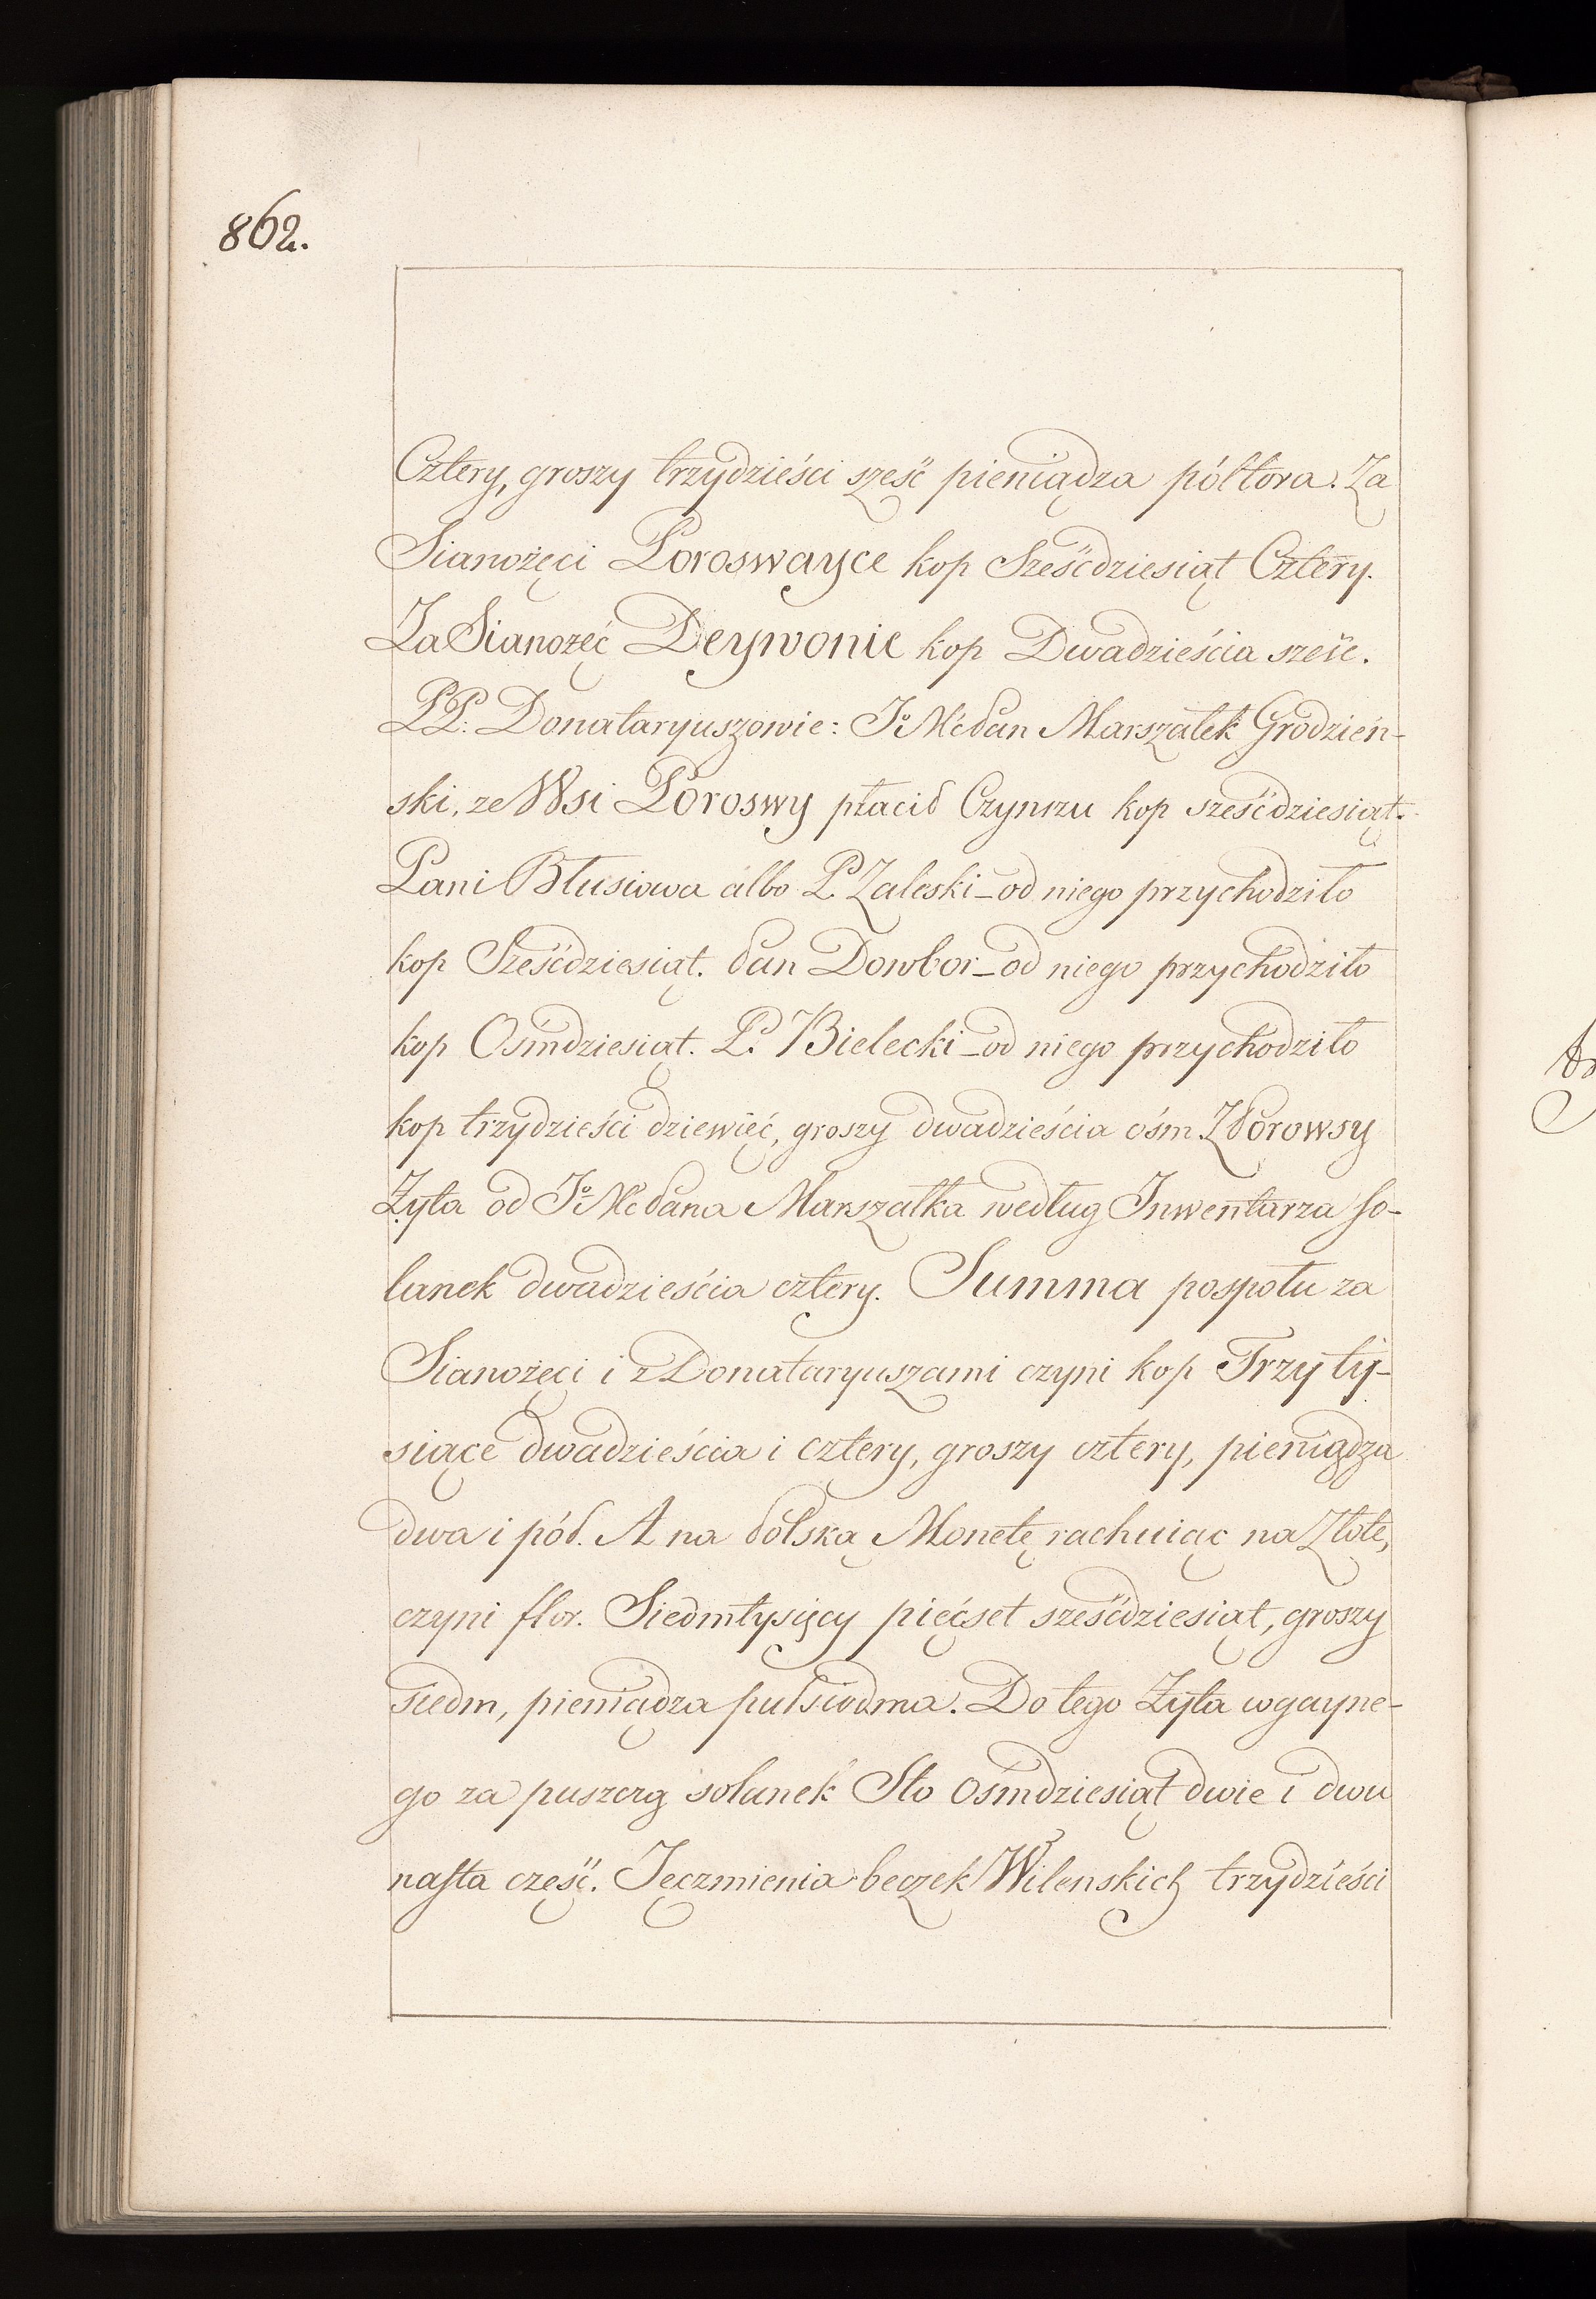 862.
Cztery, groszy trzydzieści sześć pieniądza półtora. Za
Sianożęci Poroswayce kop Sześćdziesiąt Cztery.
Za Sianożęć Deywonie kop Dwadzieścia sześć.
PP. Donataryuszowie: Jº Mć Pan Marszałek Grodzień-
ski, ze Wsi Poroswy płacił Czynszu kop sześćdziesiąt.
Pani Btusiowa albo P. Zaleski – od niego przychodziło
kop Sześćdziesiąt. Pan Dowbor – od niego przychodziło
kop Ośmdziesiąt. P. Bielecki – od niego przychodziło
kop trzydzieści dziewięć, groszy dwadzieścia ośm. Z Porowsy
Żyta od Jº Mć Pana Marszałka według Inwentarza so-
lanek dwadzieścia cztery. Summa pospołu za
Sianożęci i z Donataryuszami czyni kop Trzy ty-
siące dwadzieścia i cztery, groszy cztery, pieniądza
dwa i pół. A na Polską Monetę rachuiąc na Złote,
czyni flor. Siedmtysięcy pięćset sześćdziesiąt, groszy
siedm, pieniądza pułsiodma. Do tego Żyta wgayne-
go za puszczą solanek Sto Ośmdziesiąt dwie i dwu
nasta część. Jęczmienia beczek Wilenskich trzydzieści